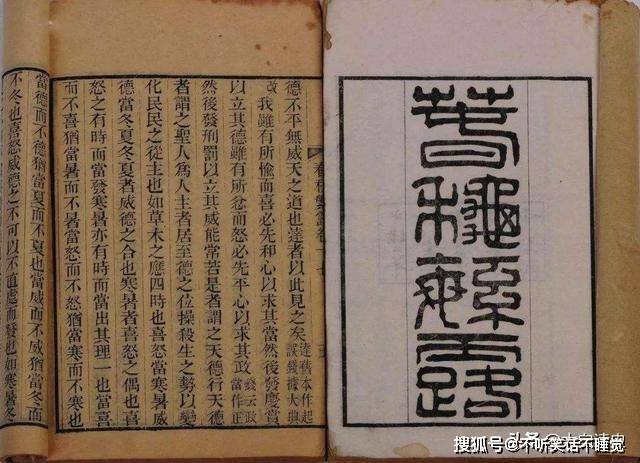 春秋繁露
德不平無威天之道也達者以此見之矣達舊本作起誤錢據大典
改我雖有所愉而喜必先和心以求其當然後發慶賞
以立其德雖有所忿而怒必先平心以求其政錢云政當作正
然後發刑罰以立其威能常若是者謂之天德行天德
者謂之聖人爲人主者居至德之位操殺生之勢以變
化民民之從主也如草木之應四時也喜怒當寒暑威
德當冬夏冬夏者威德之合也寒暑者喜怒之偶也喜
怒之有時而當發寒暑亦有時而當出其理一也當喜
而不喜猶當暑而不暑當怒而不怒猶當寒而不寒也
當德而不德猶當夏而不夏也當威而不威猶當冬而
不冬也喜怒威德之不可以不直處而發也如寒暑冬
搜狐号@不听笑话不睡觉